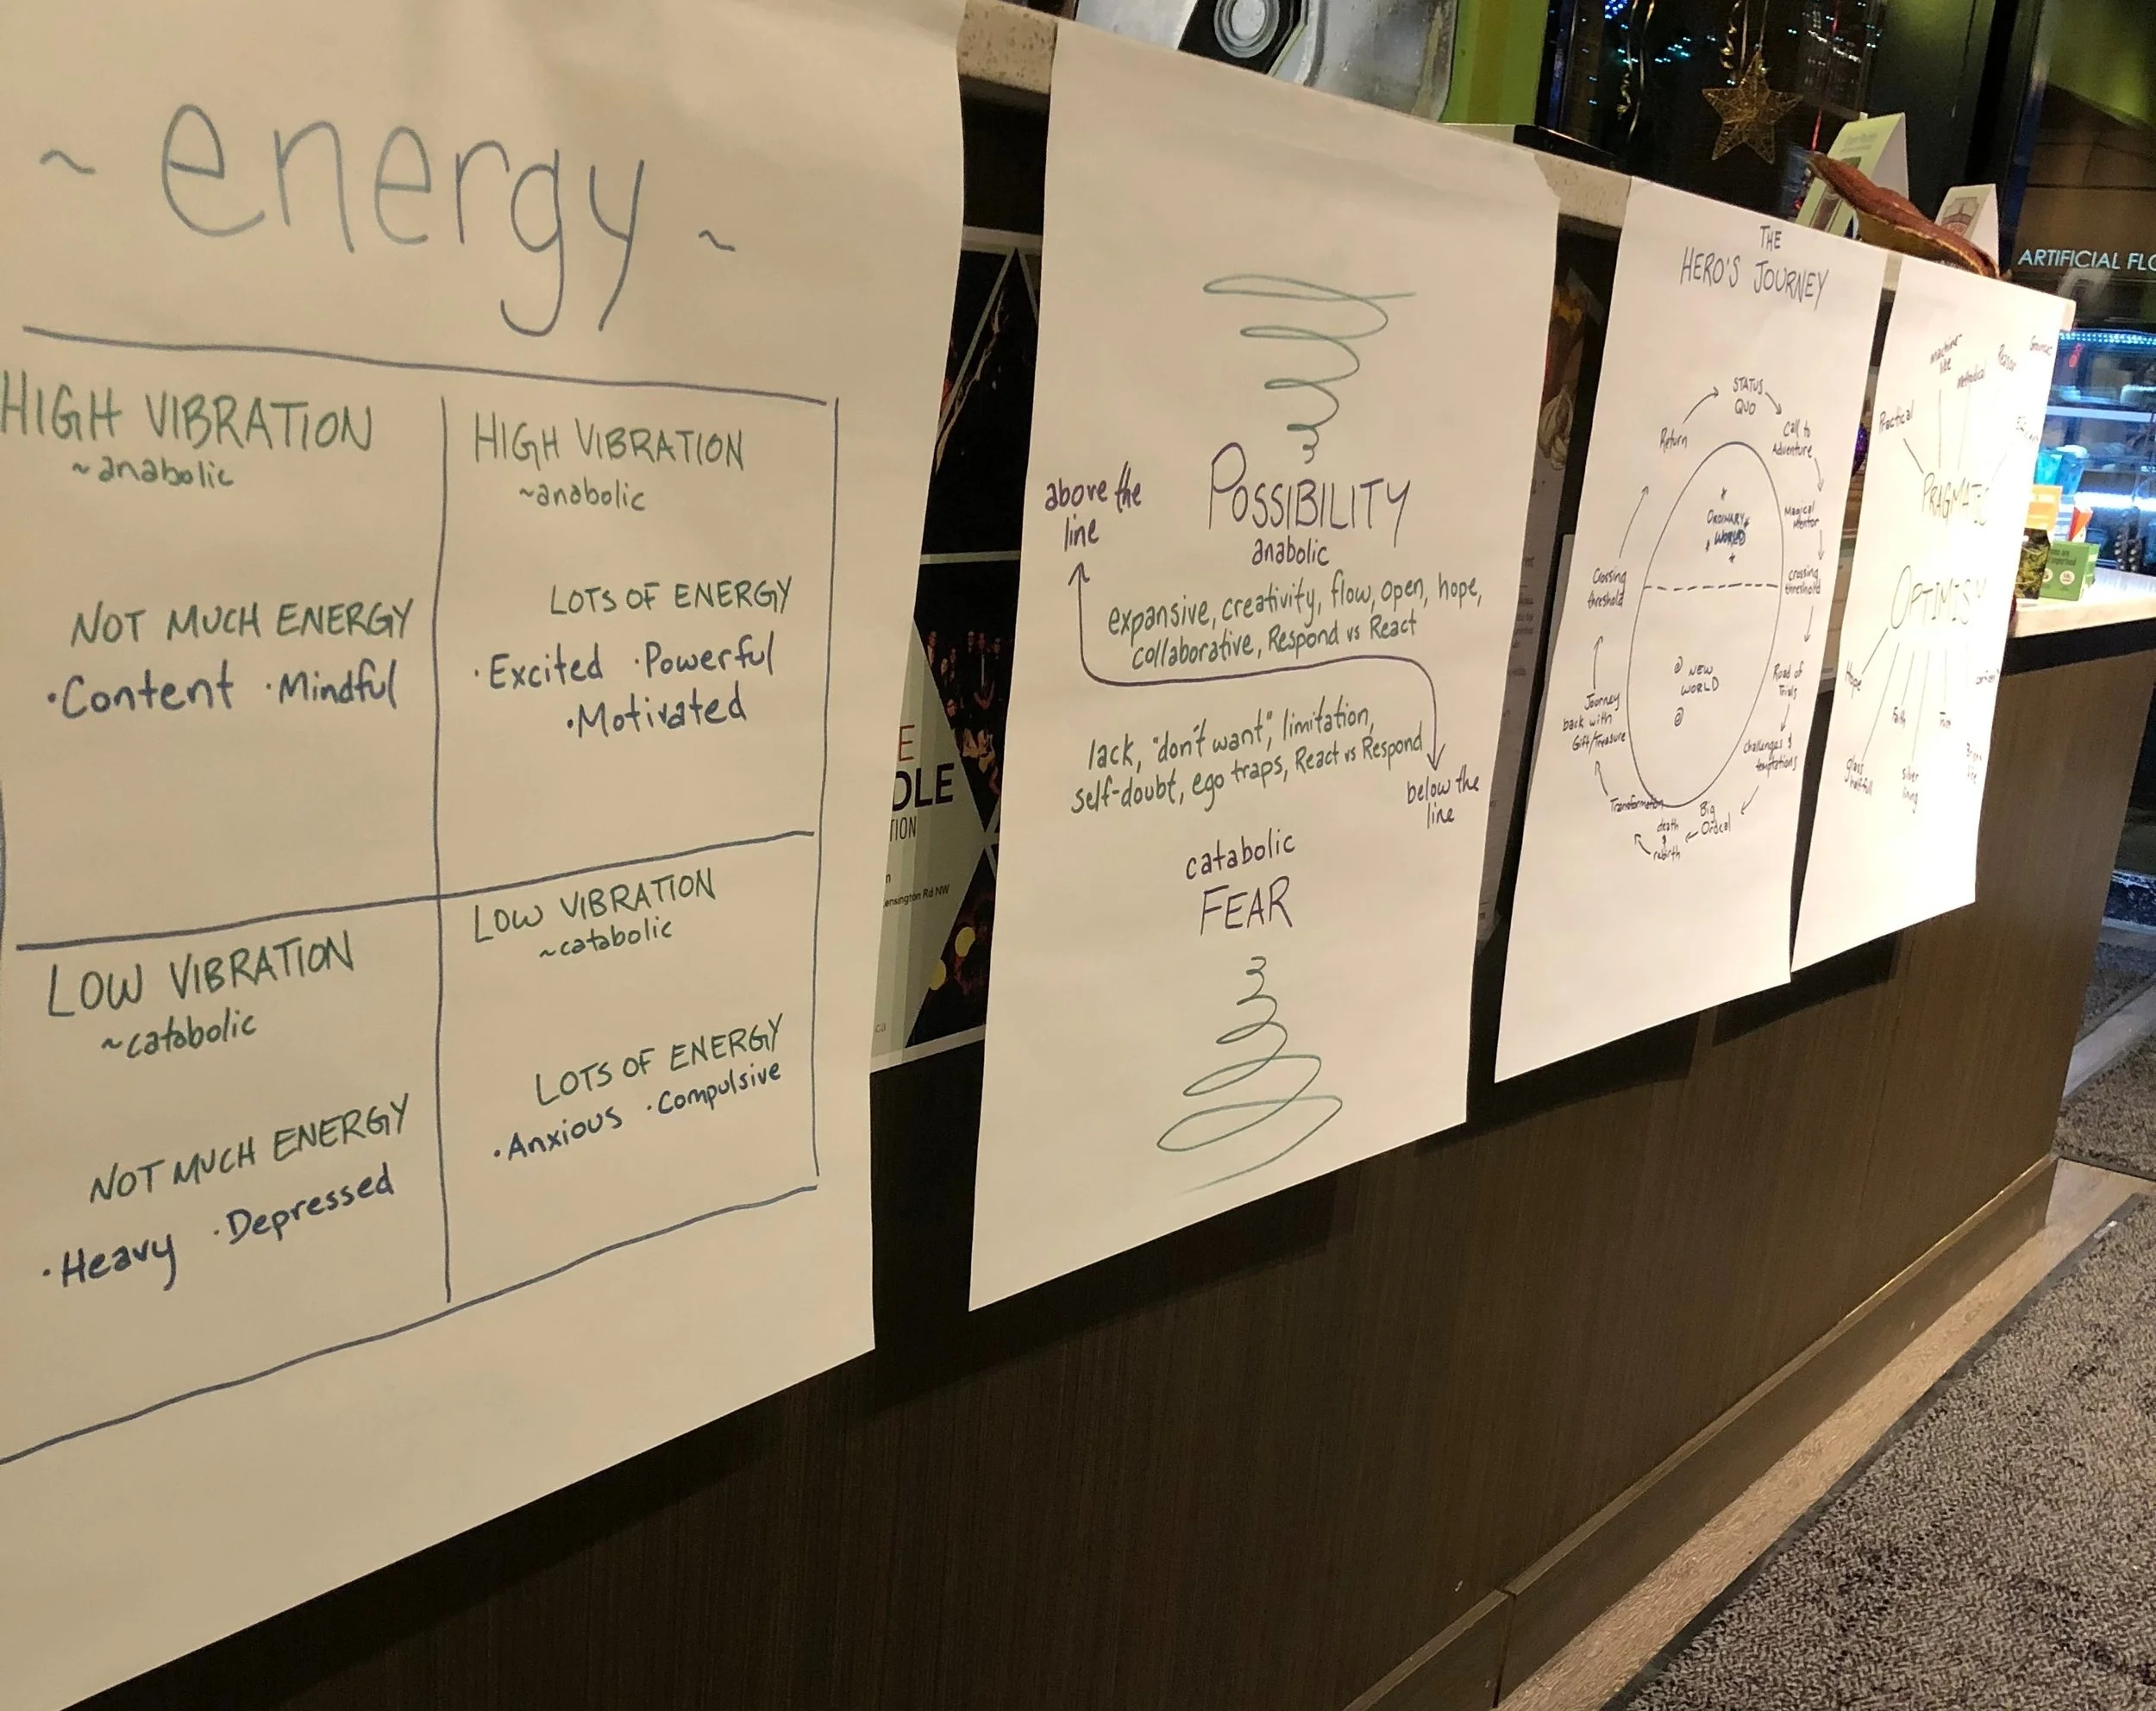 ~ energy ~
HIGH VIBRATION
~anabolic
NOT MUCH ENERGY
·Content ·Mindful
HIGH VIBRATION
~anabolic
LOTS OF ENERGY
·Excited ·Powerful
·Motivated
LOW VIBRATION
~catabolic
NOT MUCH ENERGY
·Heavy ·Depressed
LOW VIBRATION
~catabolic
LOTS OF ENERGY
·Anxious ·Compulsive
E
DLE
TION
n
ensington Rd NW
ca
above the
line
POSSIBILITY
anabolic
expansive, creativity, flow, open, hope,
collaborative, Respond vs React
lack, "don't want", limitation,
self-doubt, ego traps, React vs Respond
below the
line
catabolic
FEAR
THE
HERO'S JOURNEY
STATUS
QUO
Call to
Adventure
Magical
Mentor
crossing
threshold
Road of
Trials
challenges &
temptations
Big
Ordeal
death
&
rebirth
Transformation
Journey
back with
Gift/Treasure
Crossing
threshold
Return
ORDINARY
WORLD
NEW
WORLD
Practical
machine
like
methodical
Reason
PRAGMATIC
OPTIMISM
Hope
glass
half full
Faith
silver
lining
ARTIFICIAL FLO